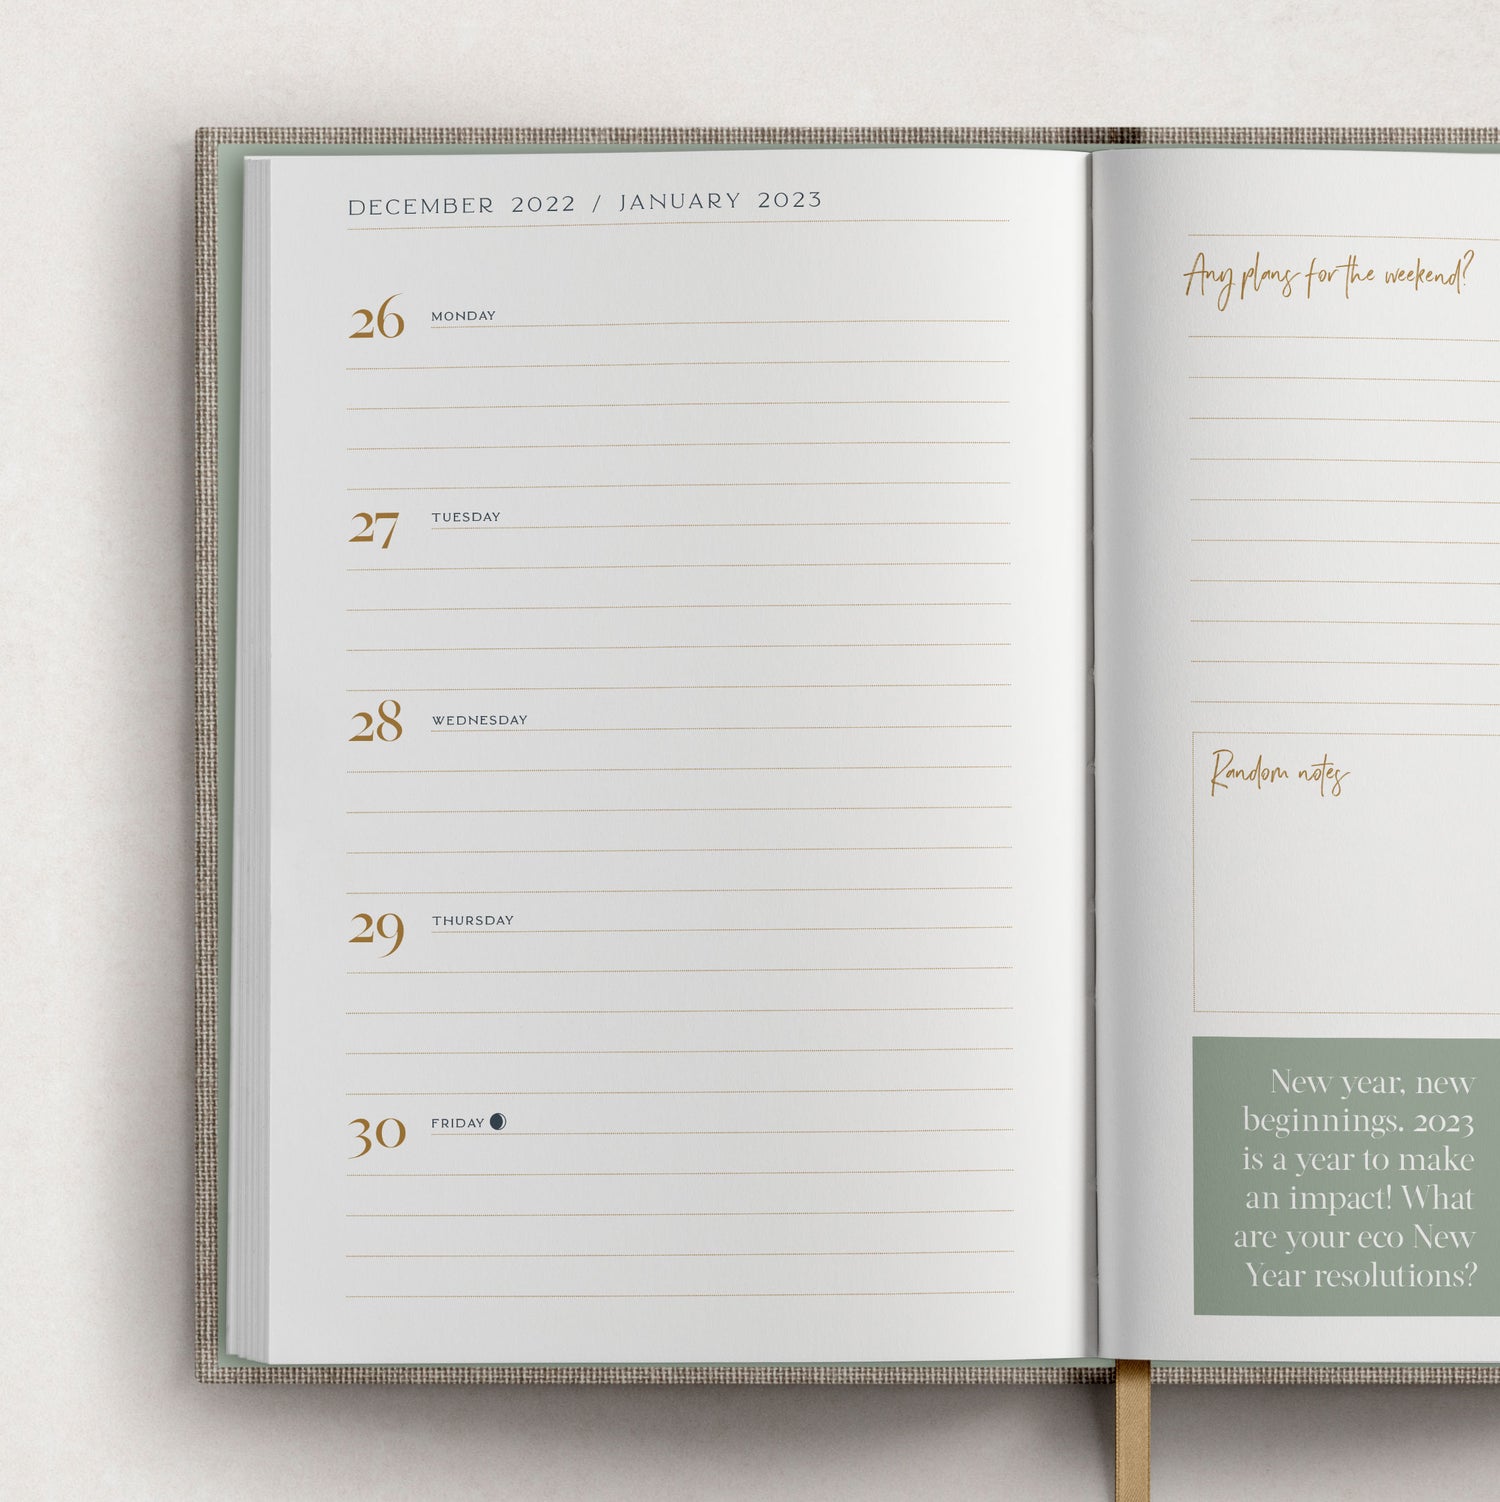 DECEMBER 2022 / JANUARY 2023
26 MONDAY
27 TUESDAY
28 WEDNESDAY
29 THURSDAY
30 FRIDAY
Any plans for the weekend?
Random notes
New year, new
beginnings. 2023
is a year to make
an impact! What
are your eco New
Year resolutions?